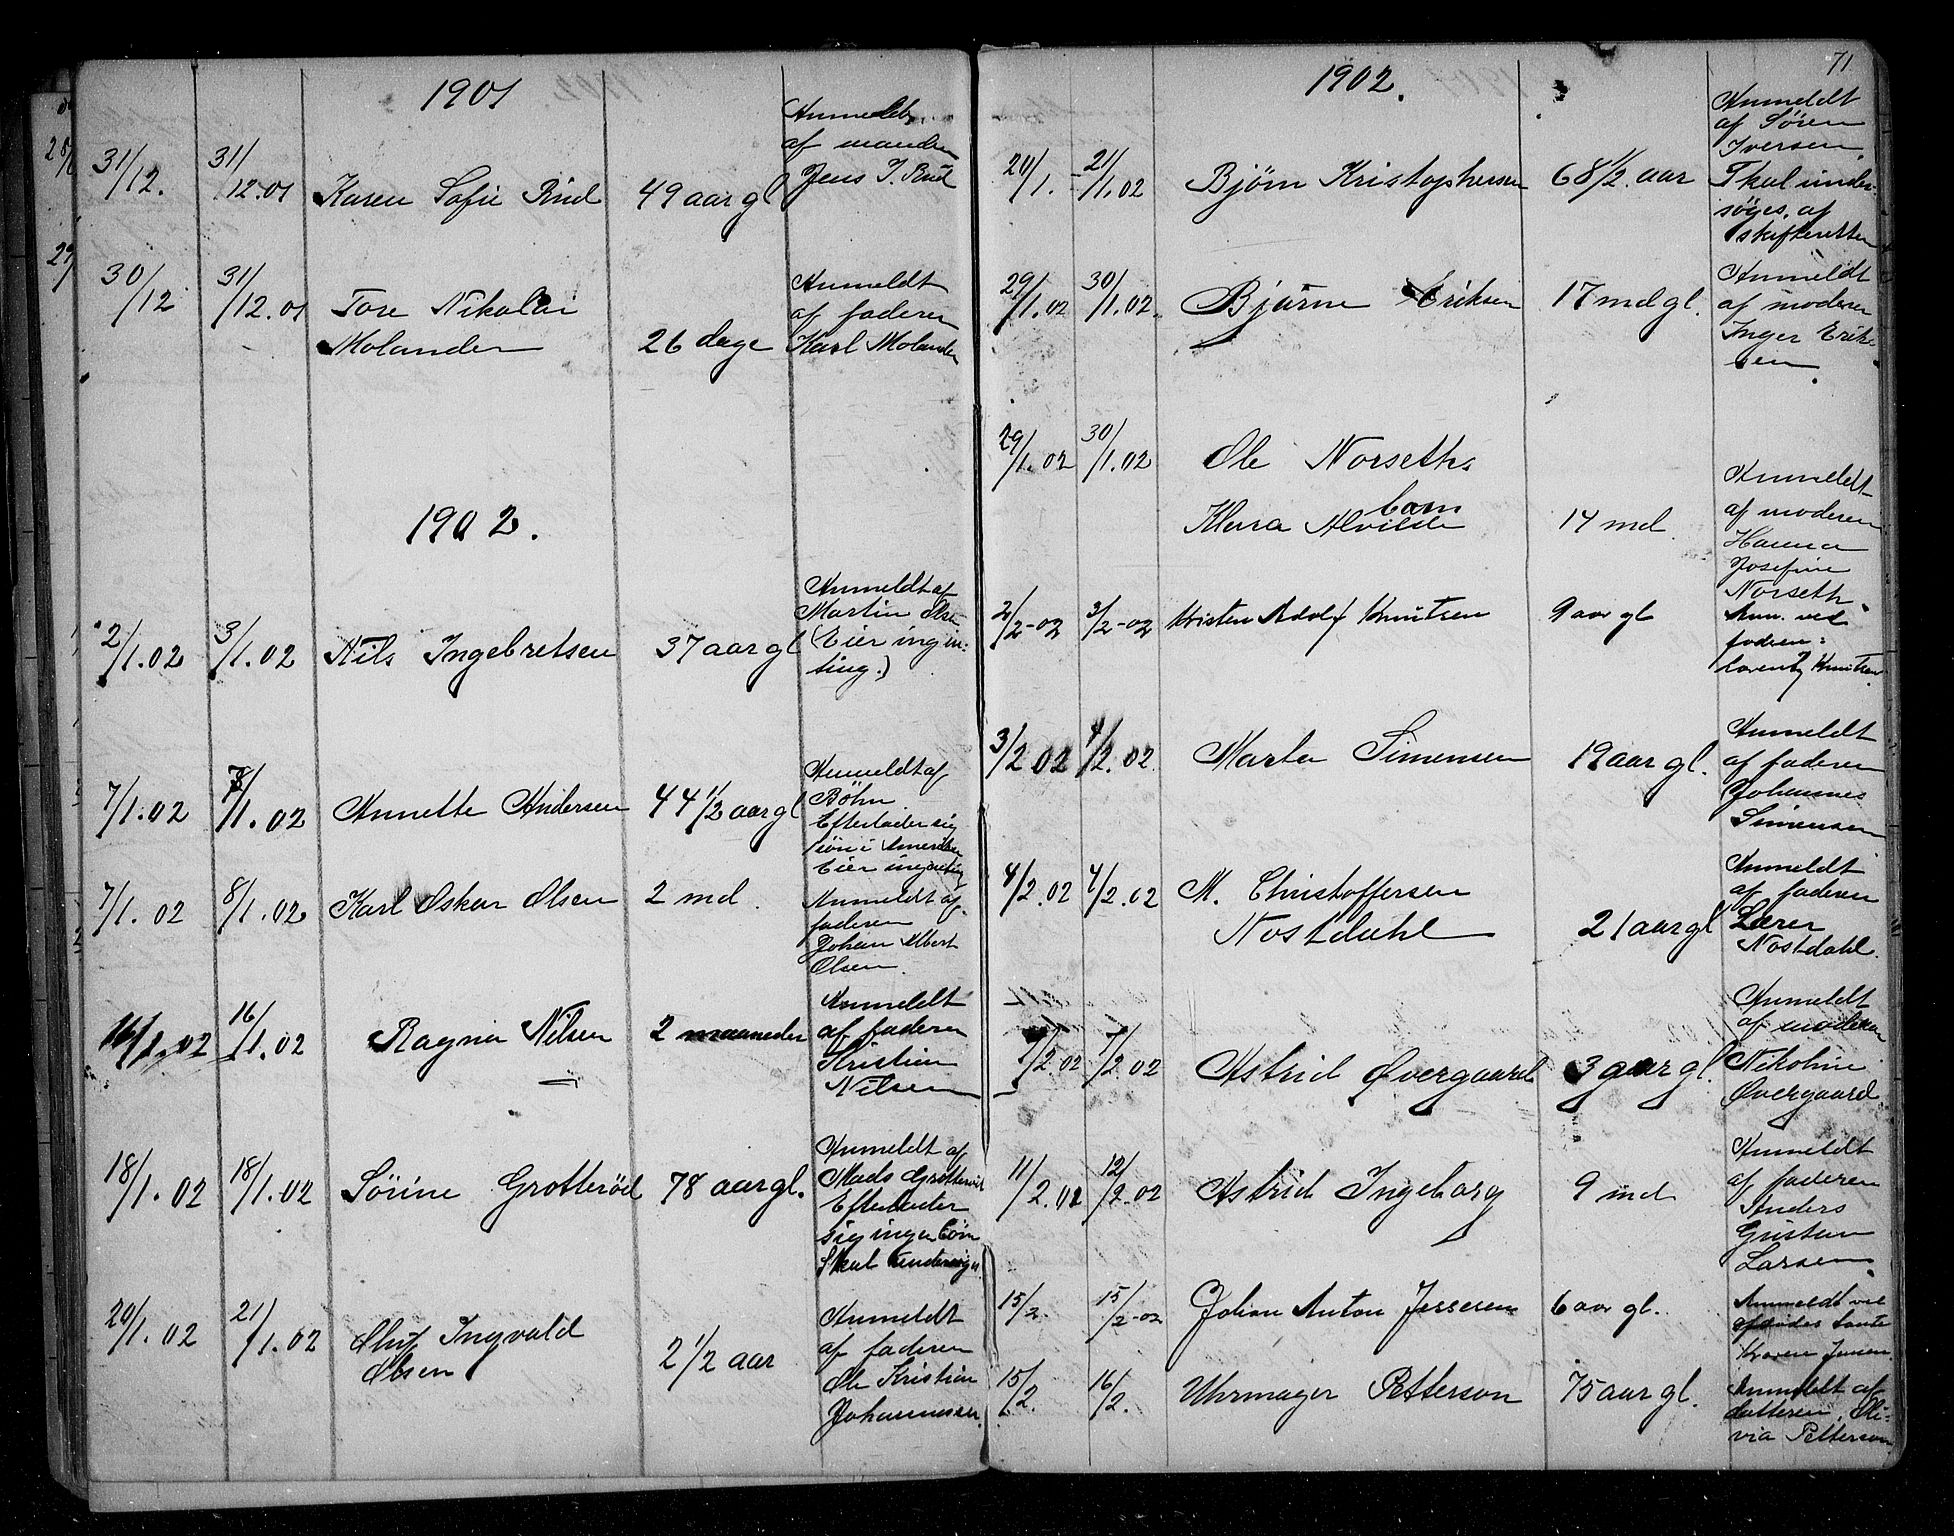 1901
31/12. 31/12.01 Karen Sofie Rud 49 aar gl
Anmeldt
af manden
Jens J. Rud
30/12 31/12.01 Tore Nikolai
Molander 26 dage
Anmeldt
af faderen
Karl Molander
1902.
2/1.02 3/1.02 Nils Ingebretsen 37 aar gl
Anmeldt af
Martin Olsen
(Eier ingen-
ting.)
7/1.02 8/1.02 Annette Andersen 44 1/2 aar gl
Anmeldt af
Bøhn.
Efterlader sig
søn i Amerika
Eier ingenting
7/1.02 8/1.02 Karl Oskar Olsen 2 md.
Anmeldt af
faderen
Johan Albert
Olsen.
16/1.02 16/1.02 Ragna Nilsen 2 maaneder
Anmeldt
af faderen
Kristian
Nilsen
18/1.02 18/1.02 Sørine Grotterød 78 aar gl.
Anmeldt af
Mads Grotterød
Efterlader
sig ingen børn
Skal
20/1.02 21/1.02 Oluf Ingvald
Olsen 2 1/2 aar
Anmeldt
af faderen
Ole Kristian
Johannessen.
71
1902.
20/1. - 21/1.02 Bjørn Kristophersen 68 1/2 aar
Anmeldt
af Søren
Iversen.
Skal under-
søges af
skifteretten
29/1.02 30/1.02. Bjarne Eriksen 17 md gl.
Anmeldt
af moderen
Inger Erik-
sen.
29/1.02 30/1.02 Ole Norseths
barn
Klara Alvilde 14 md
Anmeldt
af moderen
Hanna
Josefine
Norseth.
2/2-02 3/2-02 Kristen Adolf Knutsen 9 aar gl
Anm. ved
faderen:
Lorentz Knutsen.
3/2 02 4/2.02. Marta Simensen 19 aar gl.
Anmeldt
af faderen
Johannes
Simensen
4/2.02 4/2.02 M. Christoffersen
Nostdahl 21 aar gl
Anmeldt
af faderen
Lærer
Nostdahl.
7/2.02 7/2.02 Astrid Øvergaard 3 aar gl.
Anmeldt
af moderen
Nikoline
Øvergaard.
11/2.02 12/2.02 Astrid Ingeborg 9 md
Anmeldt
af faderen
Anders
Gustav
Larsen.
15/2. 15/2-02 Johan Anton Jensen 6 aar gl.
Anmeldt ved
afdødes tante
Karen Jensen.
15/2. 16/2. Uhrmager Petterson 75 aar gl.
Anmeldt af
datteren, Oli-
via Petterson